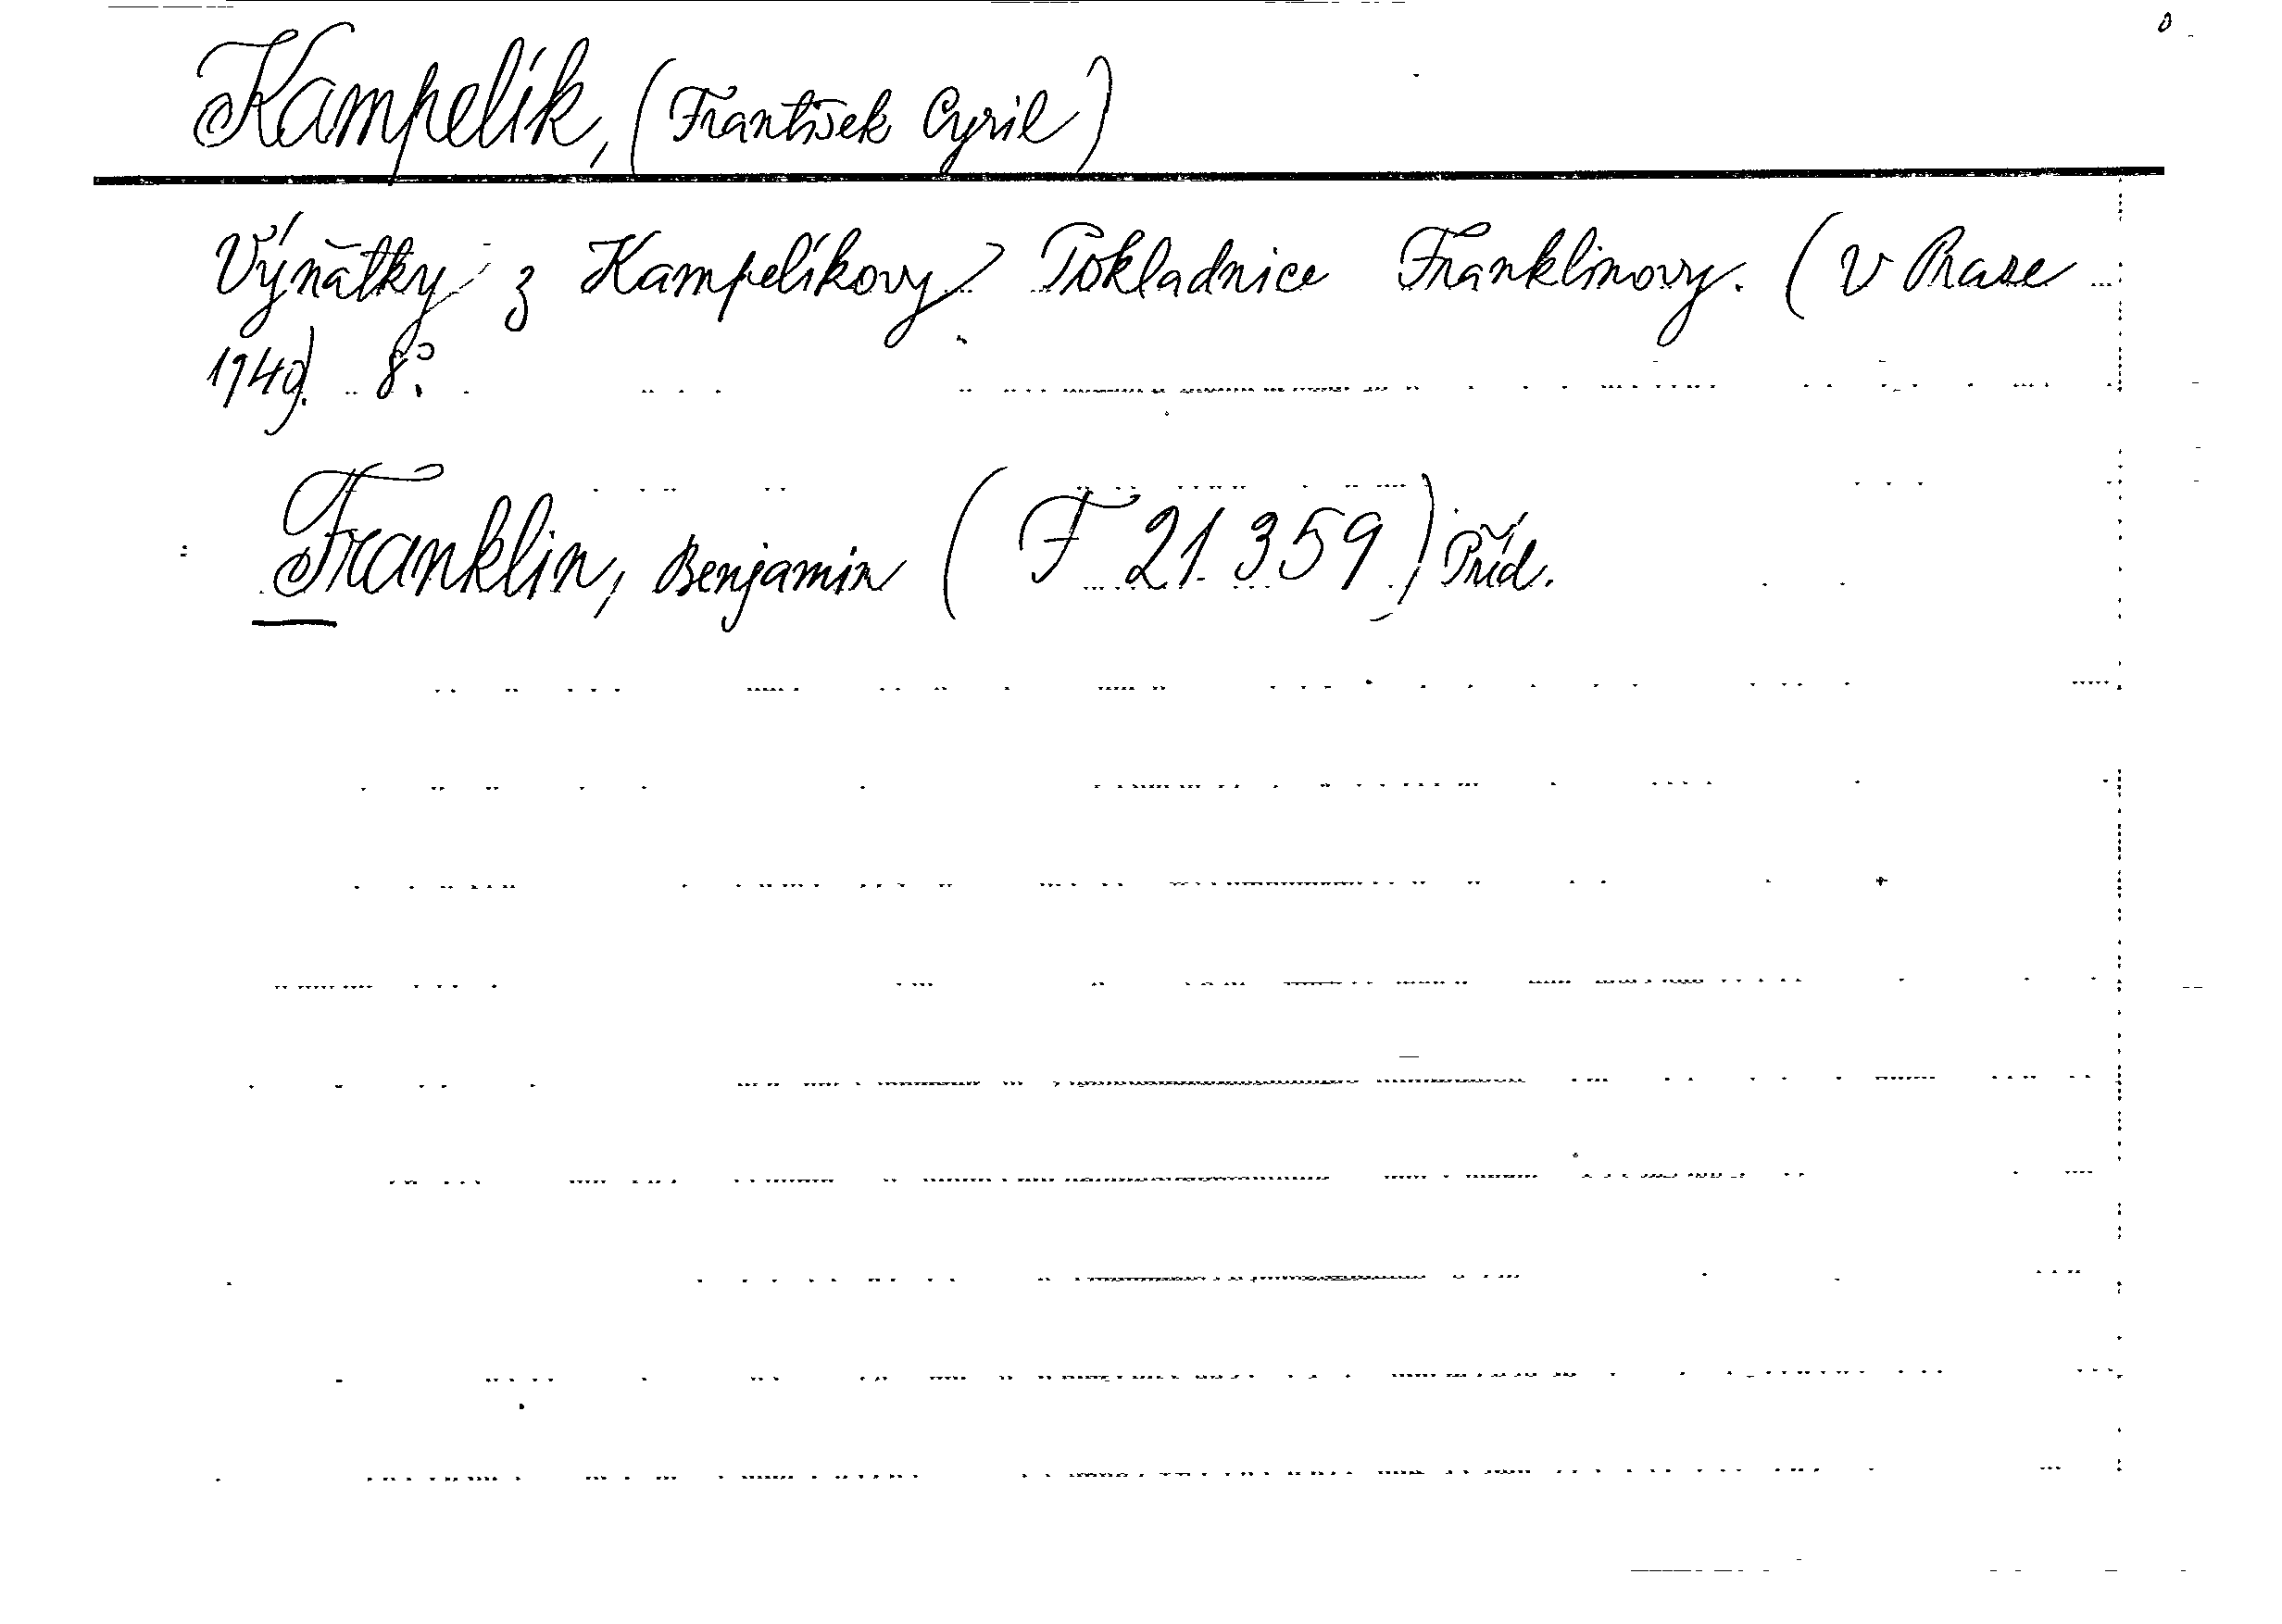 Kampelík, (František Cyril)
Výňatky z Kampelíkovy Pokladnice Franklinovy. (V Praze
1940). 8°.
Franklin, Benjamin (F 21.359) Příd.